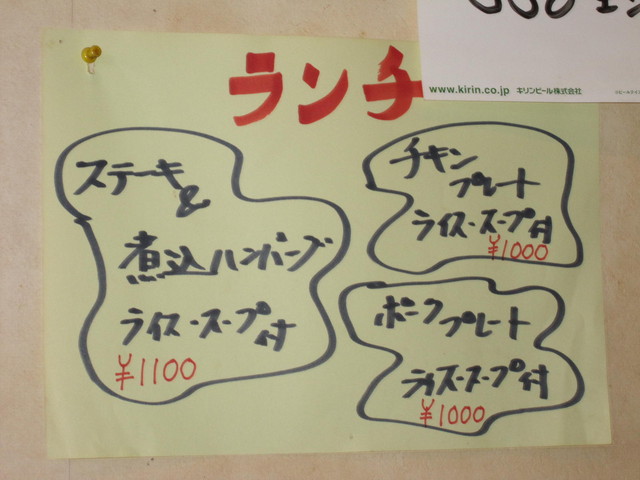 www.kirin.co.jp キリンビール株式会社
ランチ
ステーキ
&
煮込ハンバーグ
ライス・スープ付
¥1100
チキン
プレート
ライス・スープ付
¥1000
ポークプレート
ライス・スープ付
¥1000